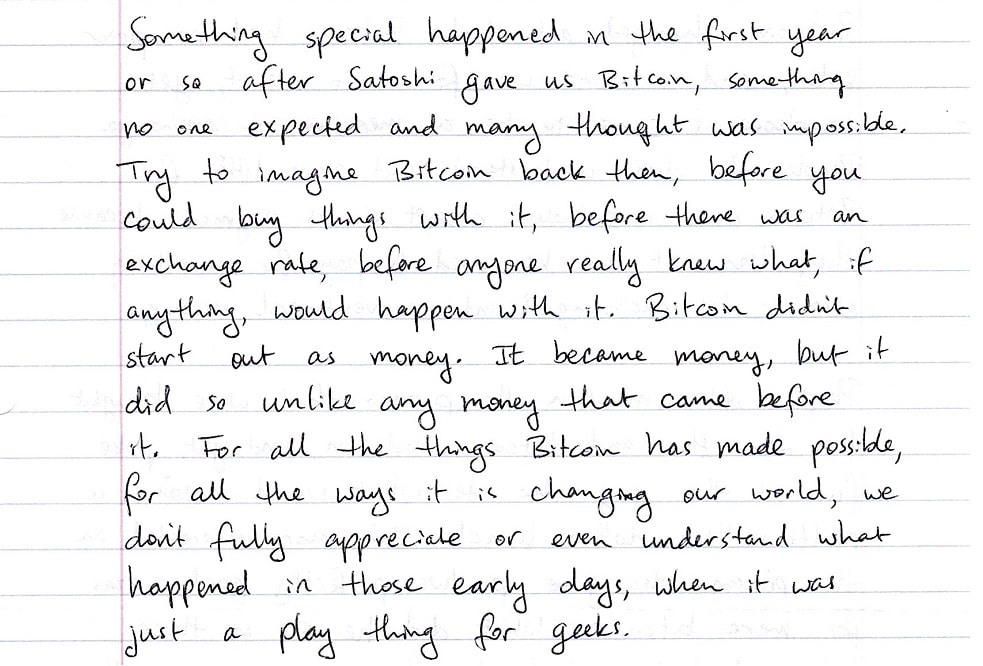 Something special happened in the first year
or so after Satoshi gave us Bitcoin, something
no one expected and many thought was impossible.
Try to imagine Bitcoin back then, before you
could buy things with it, before there was an
exchange rate, before anyone really knew what, if
anything, would happen with it. Bitcoin didn't
start out as money. It became money, but it
did so unlike any money that came before
it. For all the things Bitcoin has made possible,
for all the ways it is changing our world, we
don't fully appreciate or even understand what
happened in those early days, when it was
just a play thing for geeks.